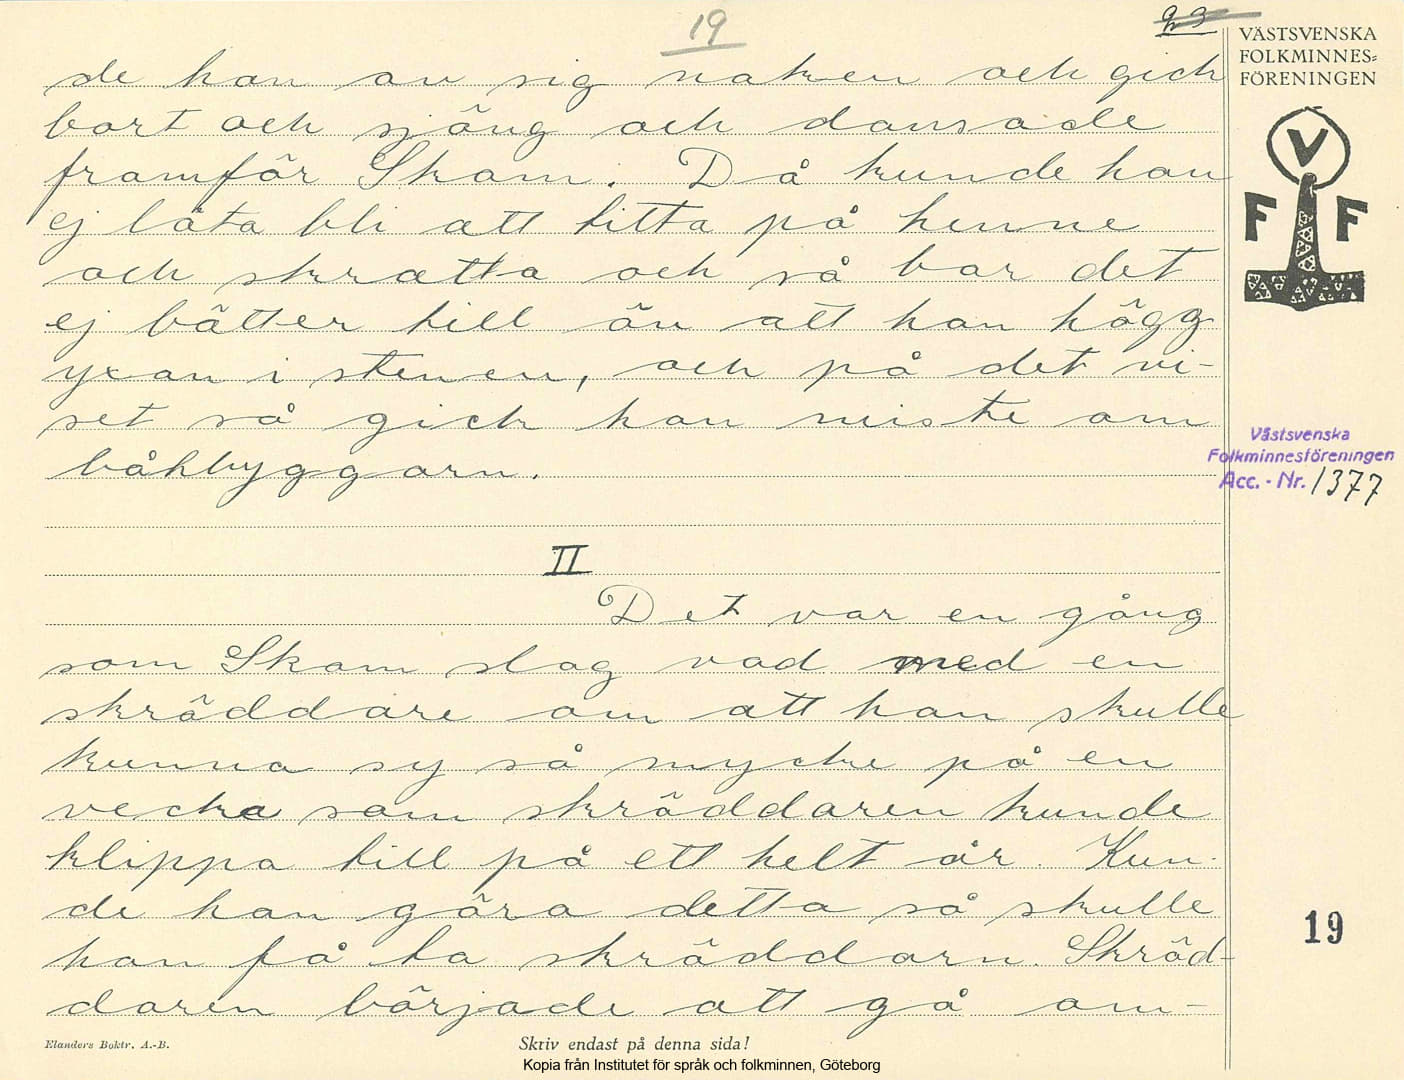 19
23
VÄSTSVENSKA
FOLKMINNES=
FÖRENINGEN
V
F F
de han av sig naken och gick
bort och sjöng och dansade
framför Skam. Då kunde han
ej låta bli att titta på henne
och skratta och så bar det
ej bätter till än att han högg
yxan i stenen, och på det vi-
set så gick han miste om
båhbyggarn.
Västsvenska
Folkminnesföreningen
Acc. - Nr. 1377
II
Det var en gång
som Skam slog vad med en
skräddare om att han skulle
kunna sy så mycke på en
vecka som skräddaren kunde
klippa till på ett helt år. Kun-
de han göra detta så skulle
han få ta skräddarn. Skräd-
daren började att gå om-
19
Elanders Boktr. A.-B.
Skriv endast på denna sida!
Kopia från Institutet för språk och folkminnen, Göteborg